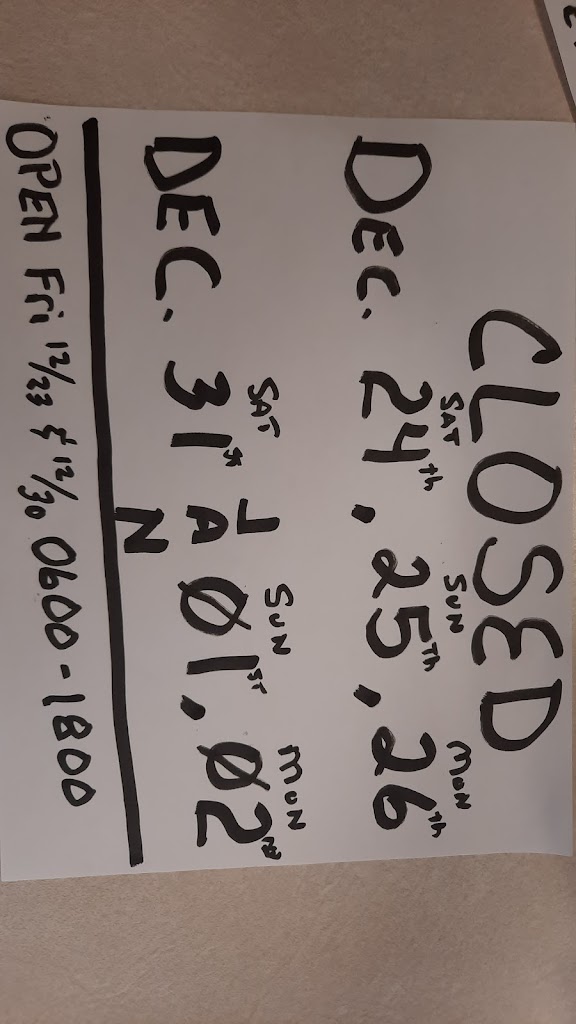 CLOSED
SAT SUN MON
DEC. 24th, 25Th, 26th
SAT SUN MON
DEC. 31st JAN Ø1ST, Ø2ND
OPEN Fri 12/23 & 12/30 0600-1800